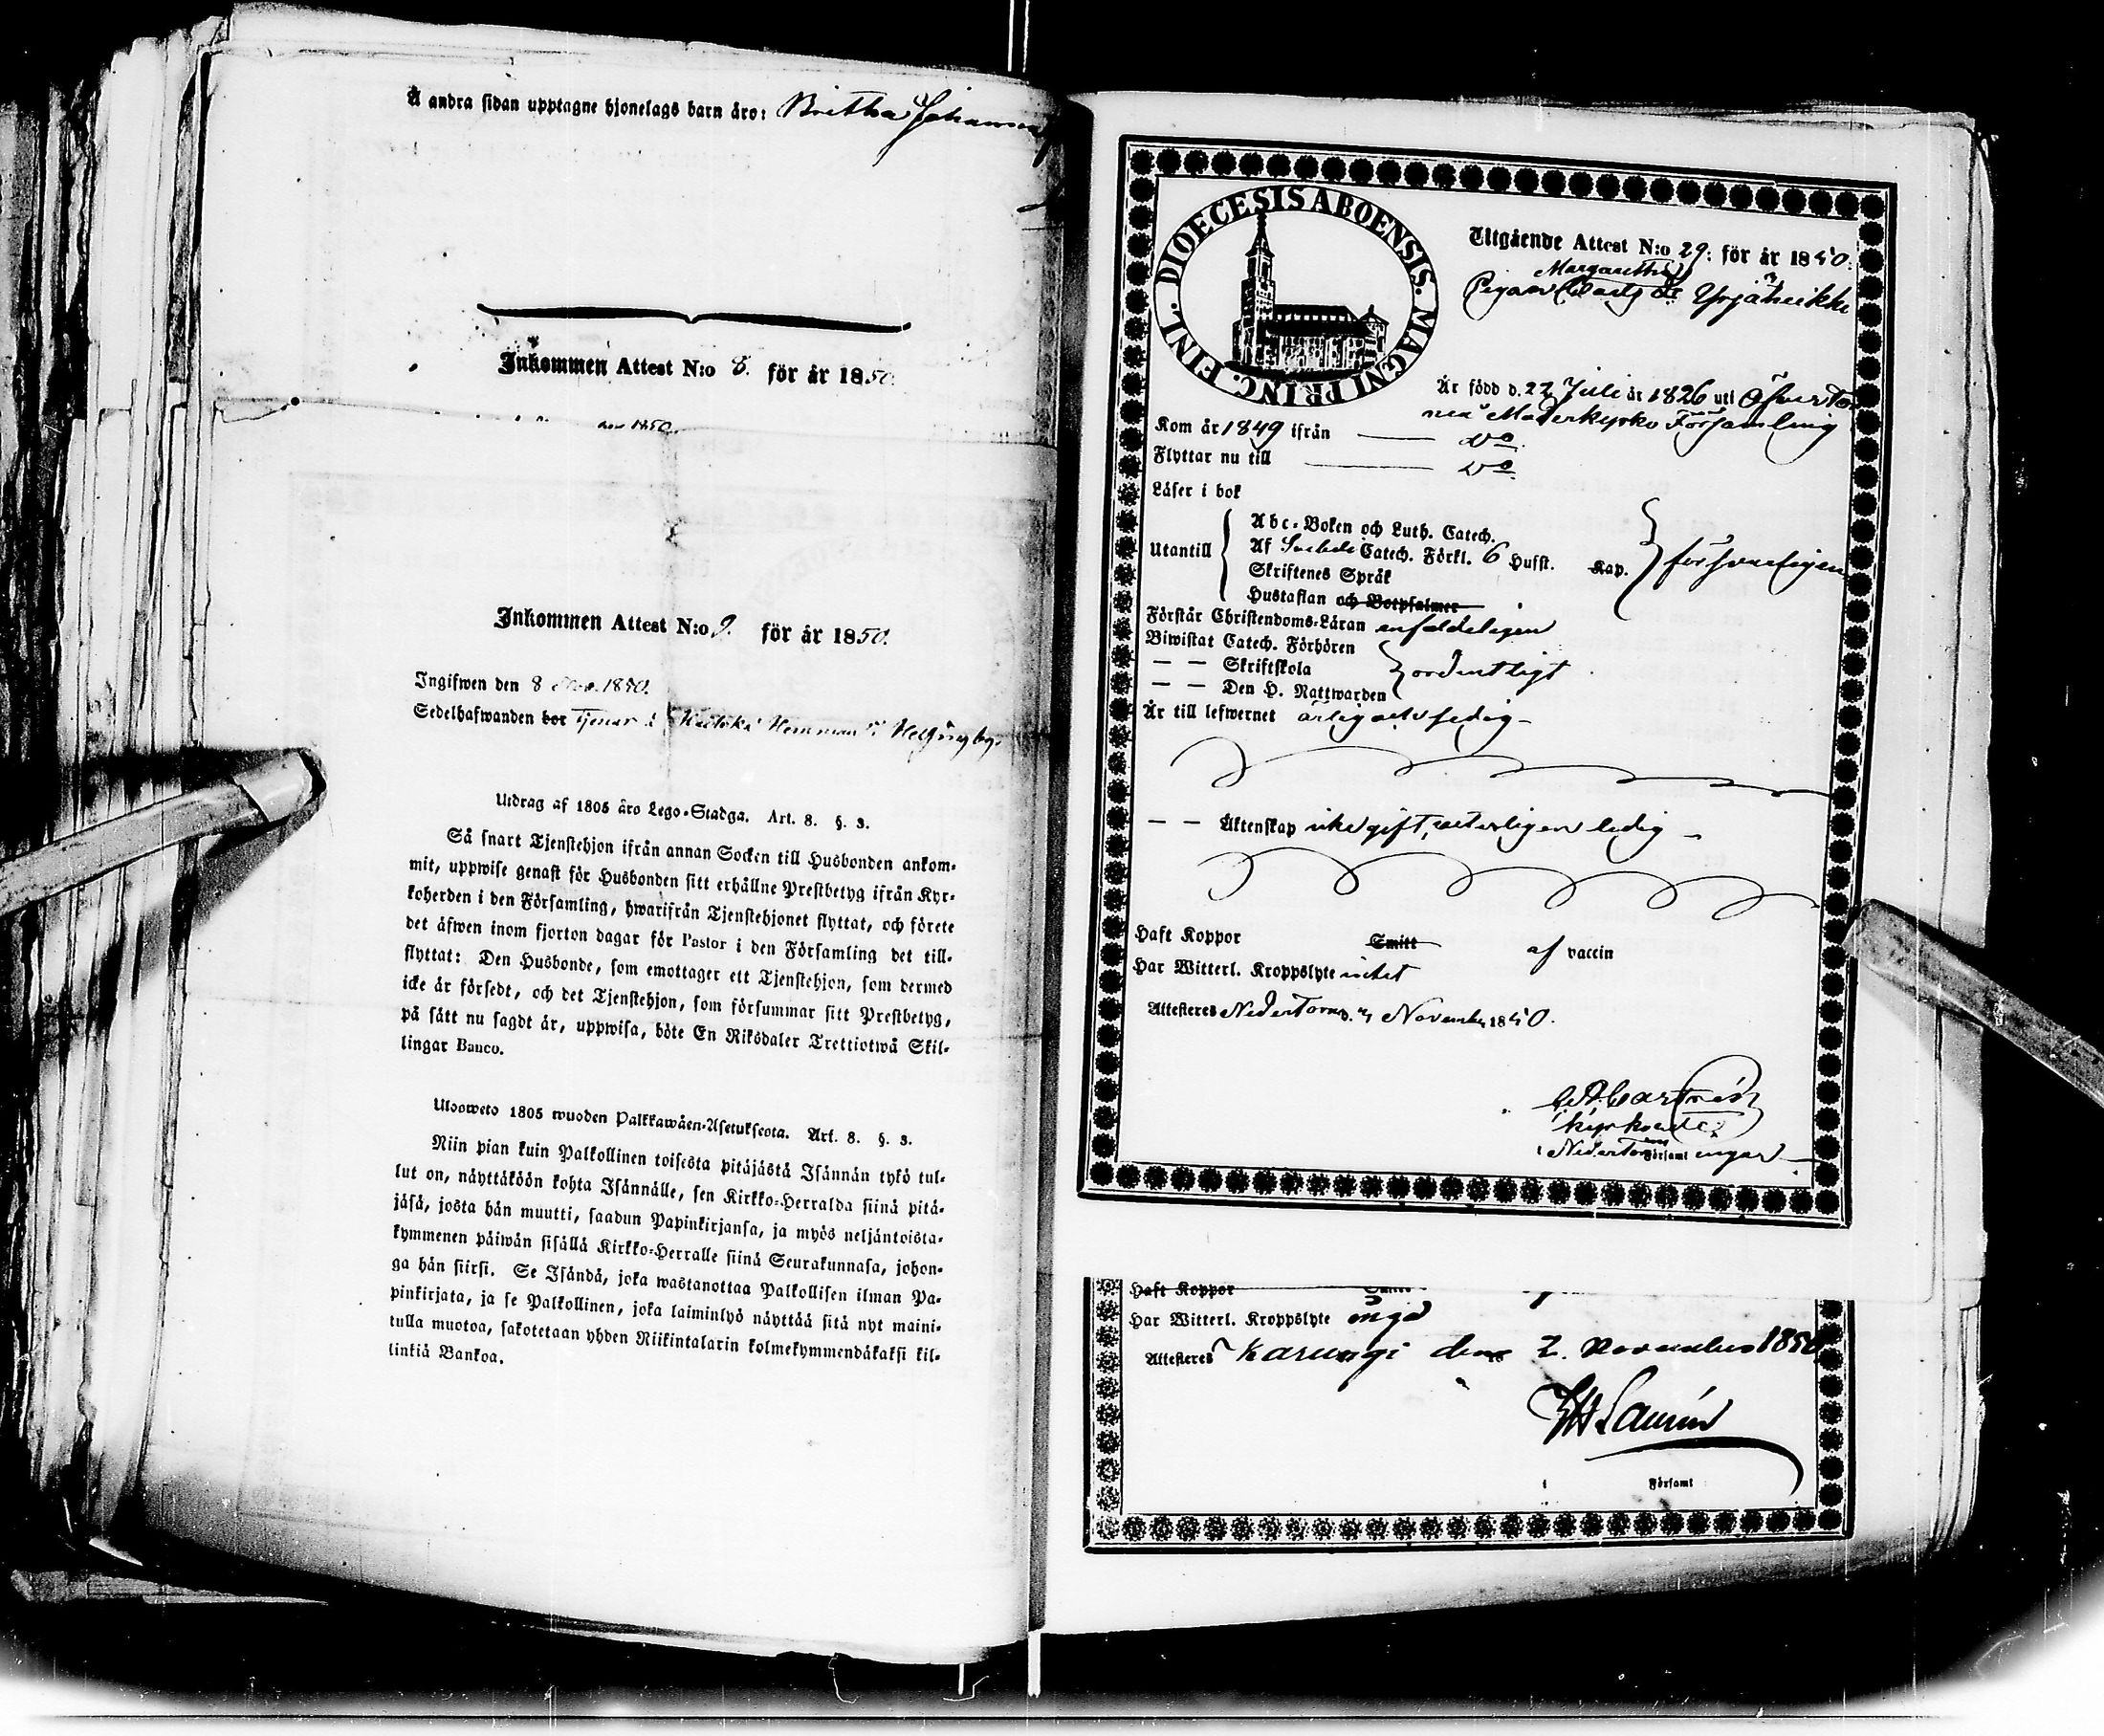 Å andra sidan upptagne hjonelags barn äro: Britha Johanna
Inkommen Attest N:o 8. för år 1850.
1850.
Inkommen Attest N:o 9. för år 1850.
Ingifwen den 8 1850.
Sedelhafwanden bor tjenar i Hemman i
Utdrag af 1805 äro Lego-Stadga. Art. 8. §. 3.
Så snart Tjenstehjon ifrån annan Socken till Husbonden ankom-
mit, uppwise genast för Husbonden sitt erhållne Prestbetyg ifrån Kyr-
koherden i den Församling, hwarifrån Tjenstehjonet flyttat, och förete
det äfwen inom fjorton dagar för Pastor i den Församling det till-
flyttat: Den Husbonde, som emottager ett Tjenstehjon, som dermed
icke är försedt, och det Tjenstehjon, som försummar sitt Prestbetyg,
på sätt nu sagdt är, uppwisa, böte En Riksdaler Trettiotwå Skil-
lingar Banco.
Ulosweto 1805 wuoden Palkkawäen-Asetuksesta. Art. 8. §. 3.
Niin pian kuin Palkollinen toisesta pitäjästä Isännän tykö tul-
lut on, näyttäköön kohta Isännälle, sen Kirkko-Herralda siinä pitä-
jäsä, josta hän muutti, saadun Papinkirjansa, ja myös neljäntoista-
kymmenen päiwän sisällä Kirkko-Herralle siinä Seurakunnasa, johon-
ga hän siirsi. Se Isändä, joka wastanottaa Palkollisen ilman Pa-
pinkirjata, ja se Palkollinen, joka laiminlyö näyttää sitä nyt maini-
tulla muotoa, sakotetaan yhden Riikintalarin kolmekymmendäkaksi kil-
linkiä Bankoa.
DIOECESIS ABOENSIS. MAGNI PRINC. FINL.
Utgående Attest N:o 29. för år 1850.
Margaretha
Pigan Yrjänheikki
Är född d. 22 Juli år 1826 uti Öfvertor
neå Moderkyrko Församling
Kom år 1849 ifrån — Do
Flyttar nu till — Do
Läser i bok
Utantill
Abc-Boken och Luth. Catech.
Af Svebeli Catech. Förkl. 6 Hufst. Kap.
försvarligen
Skriftenes Språk
Hustaflan och Botpsalmer
Förstår Christendoms-Läran enfaldeligen
Biwistat Catech. Förhören
— — Skriftskola
ordentligt
— — Den H. Nattwarden
Är till lefwernet ärlig och sedig —
— — Äktenskap icke gift, veterligen ledig —
Haft Koppor Smitt af vaccin
Har Witterl. Kroppslyte intet
Attesteres Nedertorneå d. November 1850.
Kyrkoherde
i Nedertorneå Församl ingar
Haft Koppor
Har Witterl. Kroppslyte inga
Attesteres Karungi den 2. November 1850
i Församl